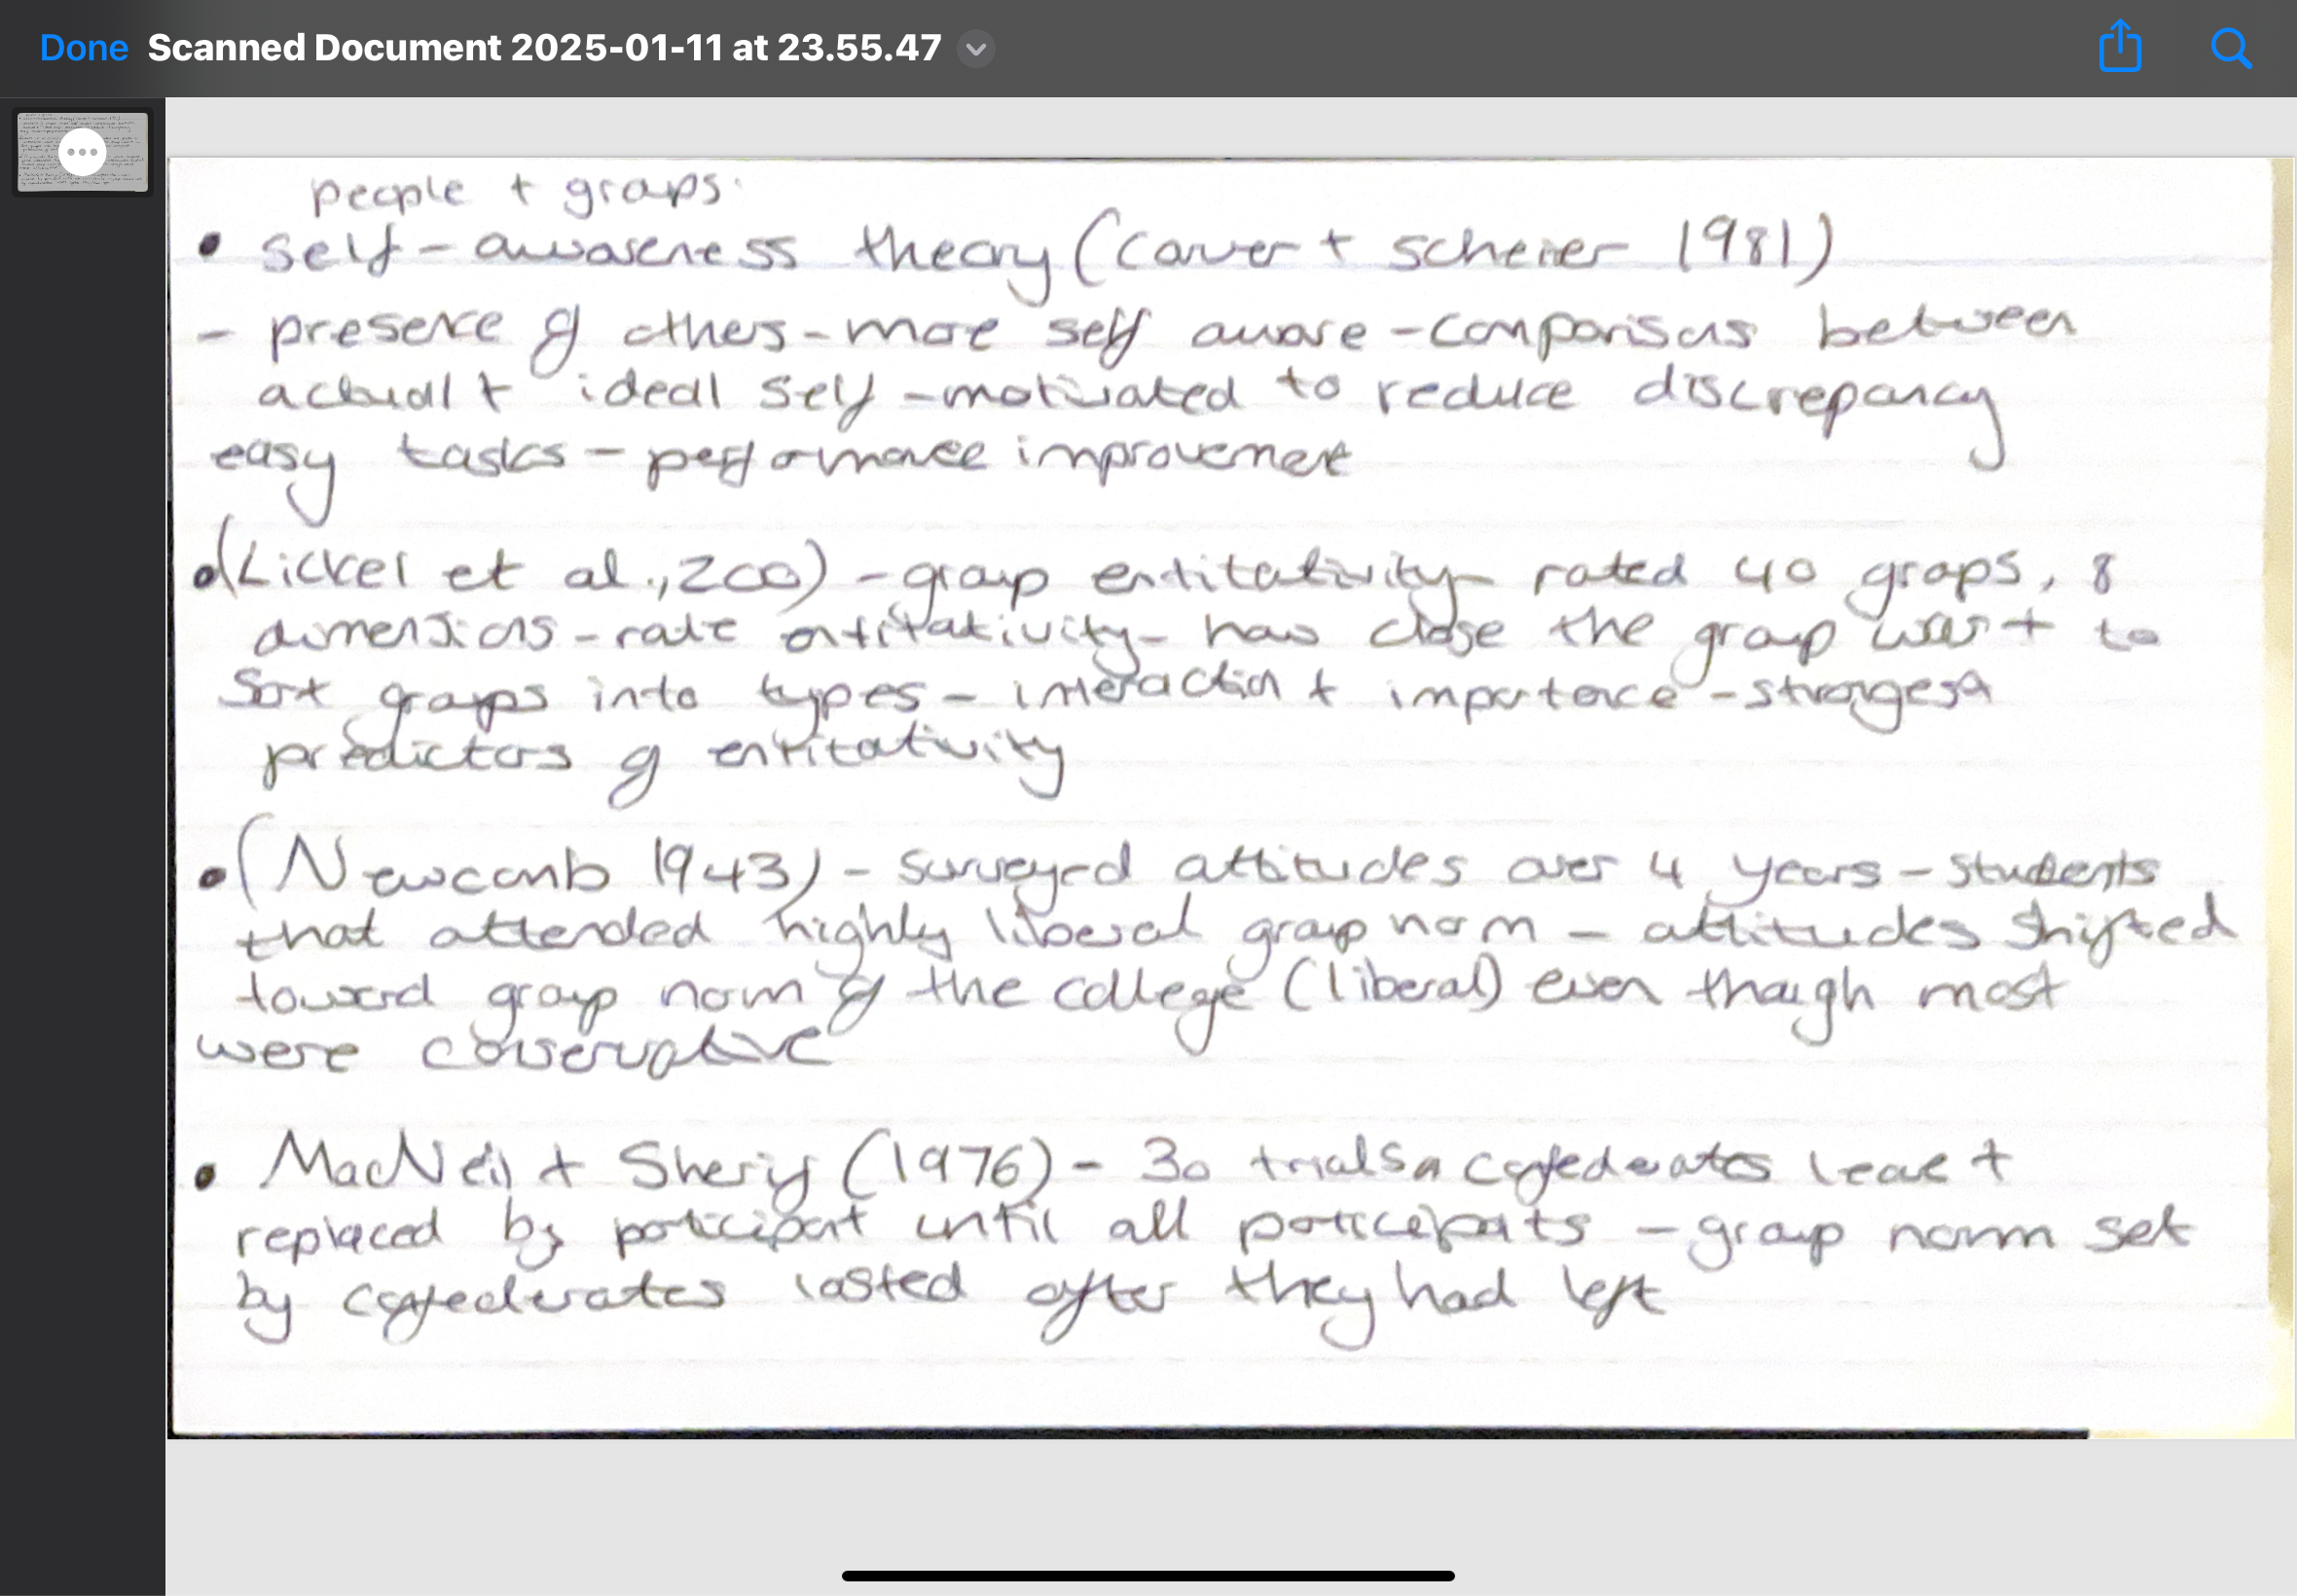 Done Scanned Document 2025-01-11 at 23.55.47
people + groups.
• self-awareness theory (Carver + Scheier 1981)
- presence of others - more self aware - comparisons between
actual + ideal self - motivated to reduce discrepancy
easy tasks - performance improvement
• (Lickel et al., 2000) - group entitativity - rated 40 groups, 8
dimensions - rate entitativity - how close the group was + to
Sort groups into types - interaction + importance - strongest
predictors of entitativity
• (Newcomb 1943) - surveyed attitudes over 4 years - students
that attended highly liberal group norm - attitudes shifted
toward group norm of the college (liberal) even though most
were conservative
• MacNeil + Sherif (1976) - 30 trials confederates leave +
replaced by participant until all participants - group norm set
by confederates lasted after they had left